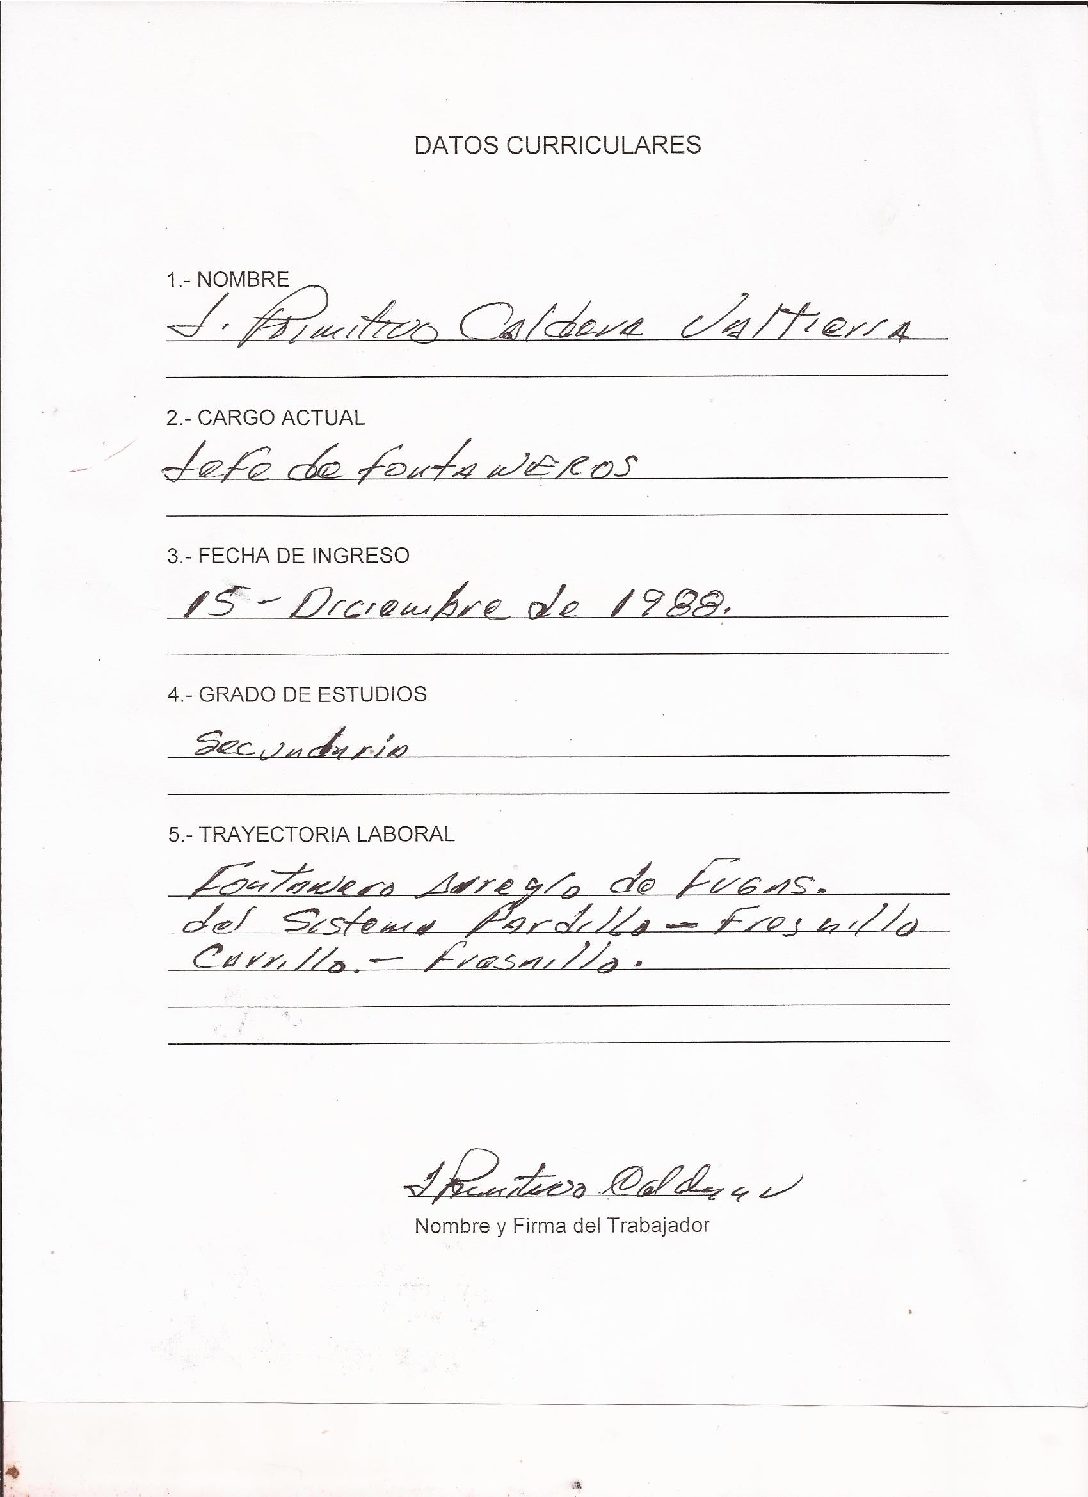 DATOS CURRICULARES
1.- NOMBRE
J. Primitivo Caldera Valtierra
2.- CARGO ACTUAL
Jefe de fontaNEROS
3.- FECHA DE INGRESO
15 - Diciembre de 1988.
4.- GRADO DE ESTUDIOS
Secundaria
5.- TRAYECTORIA LABORAL
Fontanero Arreglo de FUGAS.
del Sistema Pardillo - Fresnillo
Carrillo. - Fresnillo.
J Primitivo Caldera V
Nombre y Firma del Trabajador